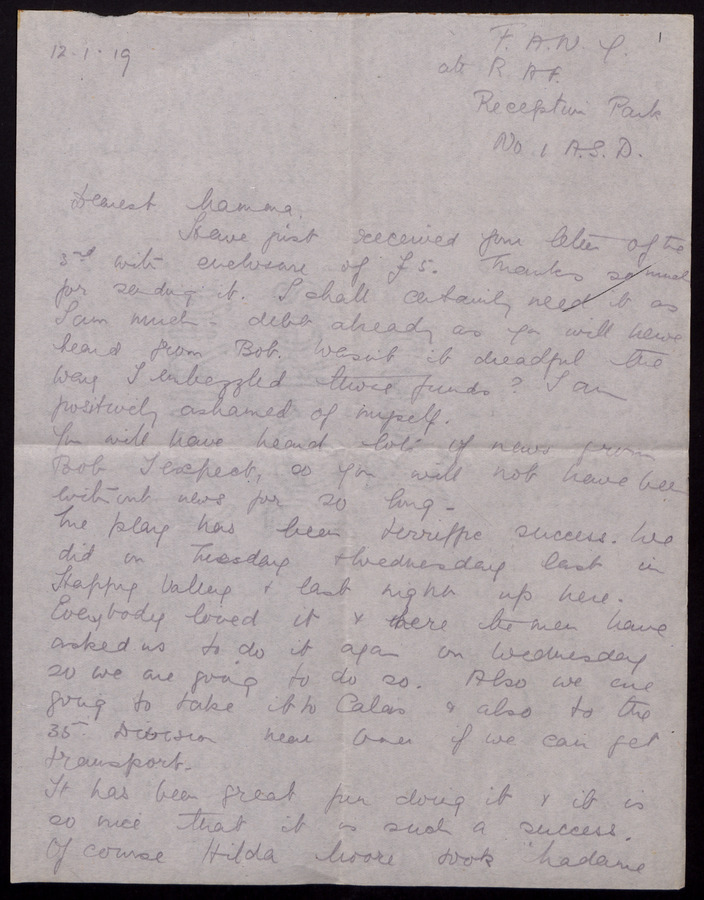 12.1.19
F.A.N.Y. 1
att R.A.F.
Reception Park
No 1 A.S.D.
Dearest Mamma.
Have just received your letter of the
3rd with enclosure of £5. Thanks so much
for sending it. I shall certainly need it as
I am much in debt already as you will have
heard from Bob. Wasn't it dreadful the
way I embezzled those funds? I am
positively ashamed of myself.
You will have heard lots of news from
Bob I expect, so you will not have been
without news for so long -
The play has been terriffic success. We
did on Tuesday & Wednesday last in
Happy Valley & last night up here.
Everybody loved it & here the men have
asked us to do it again on Wednesday
so we are going to do so. Also we are
going to take it to Calais & also to the
35th Division near if we can get
transport.
It has been great fun doing it & it is
so nice that it is such a success.
Of course Hilda Moore took Madame